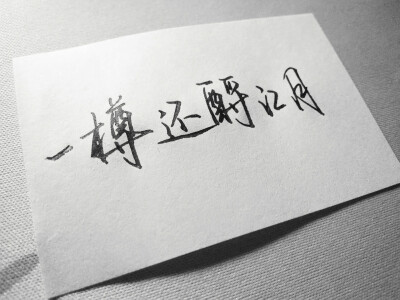 一樽还酹江月